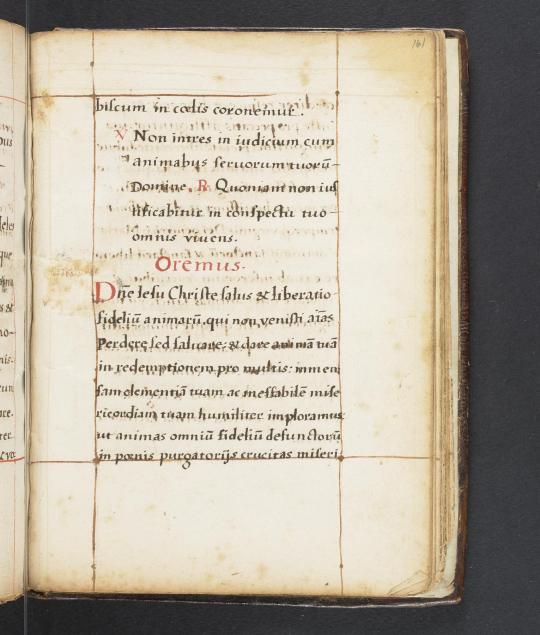 161
biscum in cœlis coronemur.
V Non intres in iudicium cum
animabus seruorum tuorū
Domine. R Quoniam non ius
tificabitur in conspectu tuo
omnis viuens.
Oremus.
Dn̄e Iesu Christe salus & liberatio
fideliū animarū, qui non venisti aīas
Perdere sed saluare: & dare animā tuā
in redemptionem pro multis: immen
sam clementiā tuam ac ineffabilē mise
ricordiam tuam humiliter imploramus
ut animas omniū fideliū defunctorū
in pœnis purgatorijs crucitas miseri